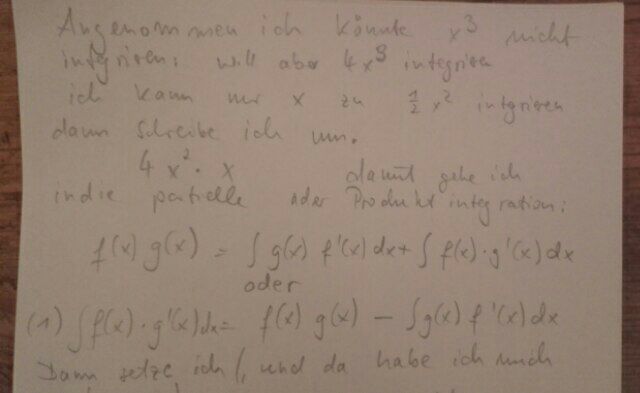 Angenommen ich könnte x³ nicht
integriren: will aber 4x³ integriren
ich kann nur x zu ½ x² intgrieren
dann schreibe ich um.
4 x² · x damit gehe ich
in die partielle oder Produkt integration:
f(x) g(x) = ∫ g(x) f'(x) dx + ∫ f(x) · g'(x) dx
oder
(1) ∫ f(x) · g'(x) dx = f(x) g(x) − ∫ g(x) f'(x) dx
Dann setze ich (, und da habe ich mich